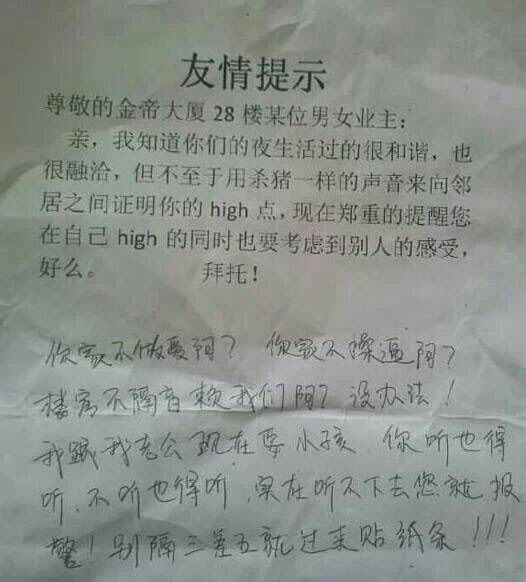 友情提示
尊敬的金帝大厦 28 楼某位男女业主：
亲，我知道你们的夜生活过的很和谐，也
很融洽，但不至于用杀猪一样的声音来向邻
居之间证明你的 high 点，现在郑重的提醒您
在自己 high 的同时也要考虑到别人的感受，
好么。 拜托！
你家不做爱阿？ 你家不操逼阿？
楼房不隔音赖我们阿？没办法！
我跟我老公现在要小孩 你听也得
听，不听也得听，实在听不下去您就报
警！别隔三差五就过来贴纸条！！！